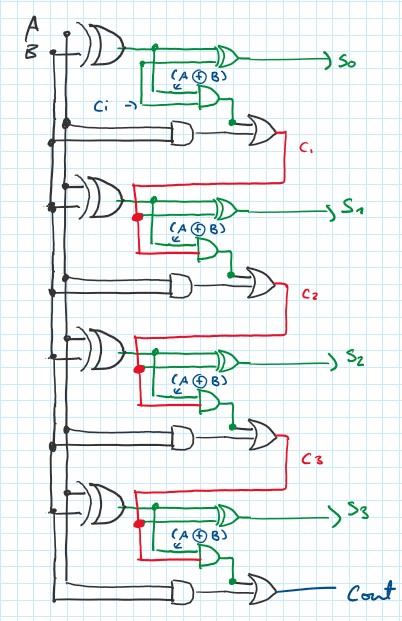 A
B
S0
(A ⊕ B)
Ci →
C1
S1
(A ⊕ B)
C2
S2
(A ⊕ B)
C3
S3
(A ⊕ B)
Cout